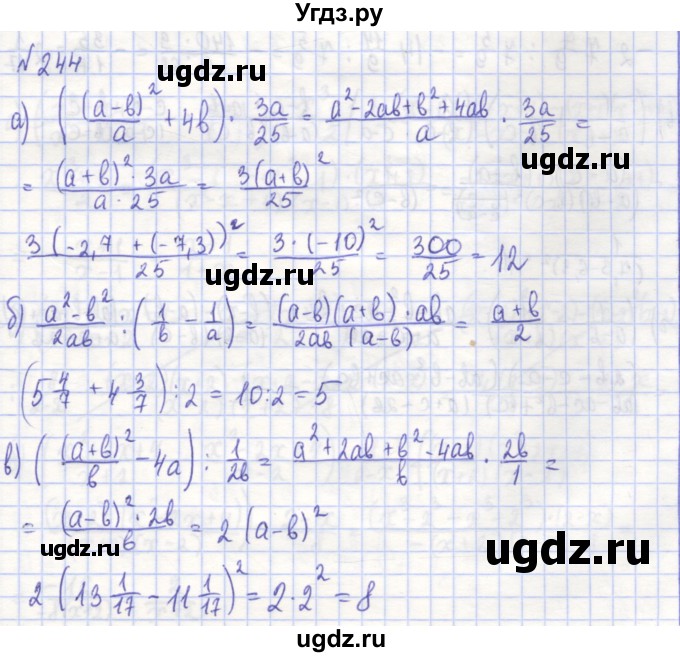 Угдз.ру
№ 244
ugdz.ru
а) ((a-b)²/a + 4b) · 3a/25 = (a²-2ab+b²+4ab)/a · 3a/25 =
ugdz.ru
= ((a+b)² · 3a)/(a · 25) = 3(a+b)²/25
3(-2,7 + (-7,3))²/25 = 3 · (-10)²/25 = 300/25 = 12
ugdz.ru
б) (a²-b²)/2ab : (1/b - 1/a) = ((a-b)(a+b) · ab)/(2ab (a-b)) = (a+b)/2
(5 4/7 + 4 3/7) : 2 = 10 : 2 = 5
в) ((a+b)²/b - 4a) : 1/2b = (a²+2ab+b²-4ab)/b · 2b/1 =
ugdz.ru
= ((a-b)² · 2b)/b = 2 (a-b)²
ugdz.ru
ugdz.ru
2 (13 1/17 - 11 1/17)² = 2 · 2² = 8
ugdz.ru